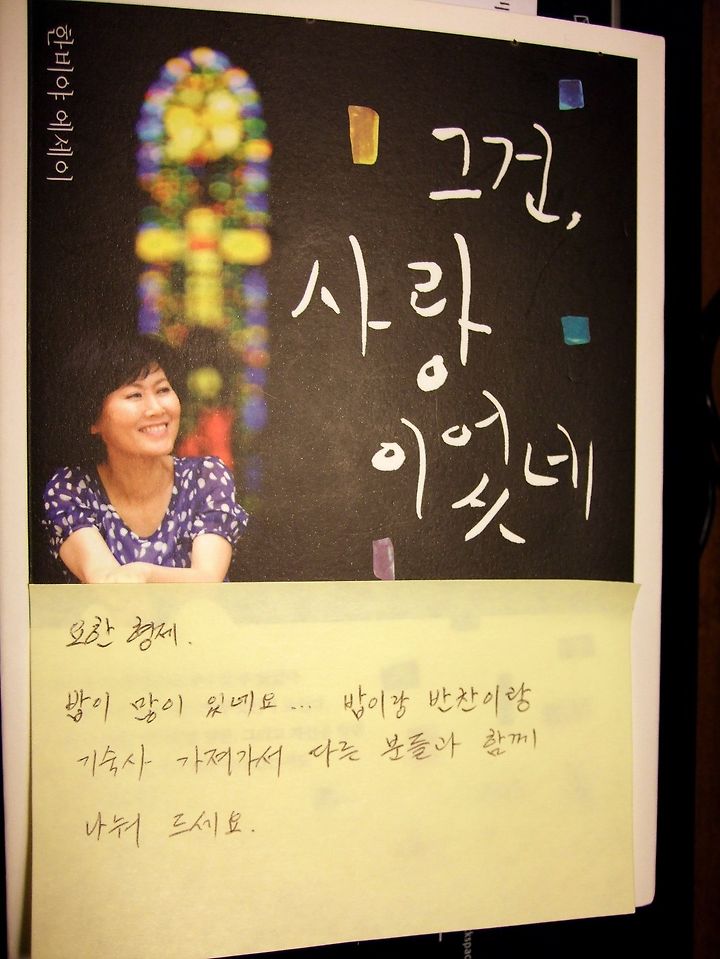 한비야 에세이
그건,
사랑
이었네
요한 형제.
밥이 많이 있네요... 밥이랑 반찬이랑
기숙사 가져가서 다른 분들과 함께
나눠 드세요.
kspac